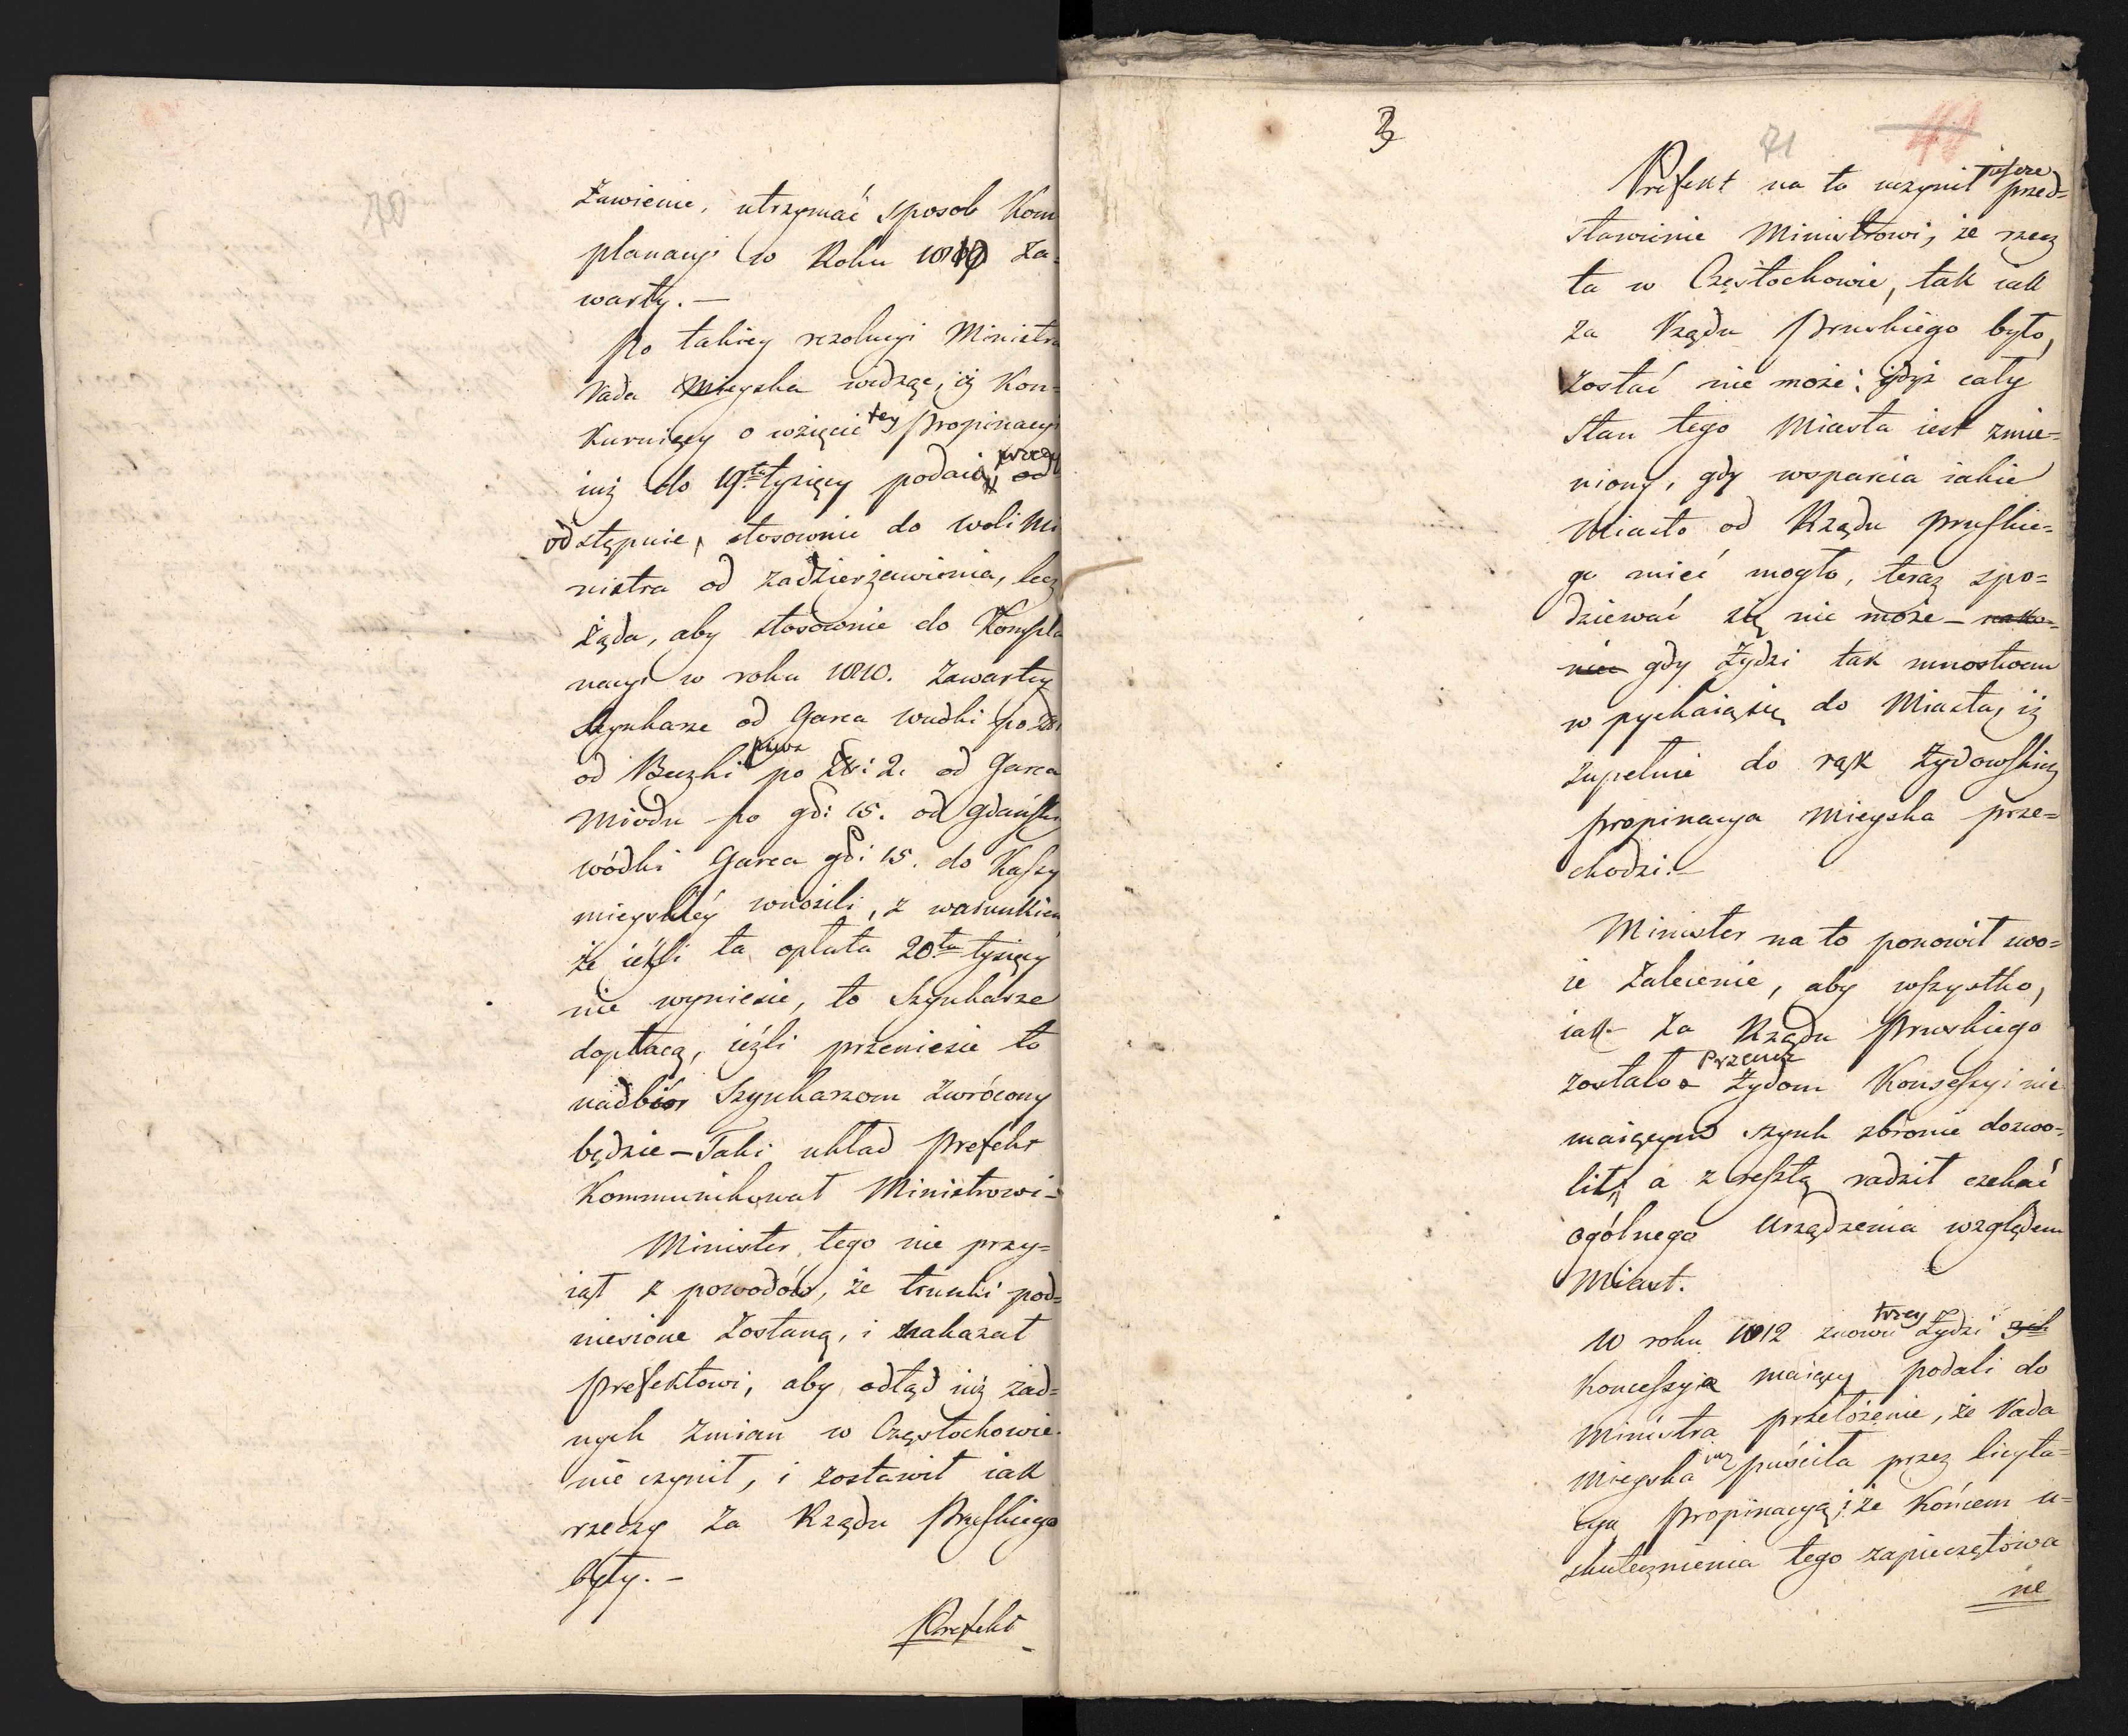 70
żawienie, utrzymać sposob Kom
planacyi w Roku 1810 za-
warty. —
Po takiey rezolucyi Ministra
Rada Mieyska widząc, iż Kon-
kuruiący o wzięcie tey Propinacyi
iuż do 19tu tysięcy podaią,
odstępuie, stosownie do woli Mi
nistra od zadzierżawienia, lecz
żąda, aby stosownie do Kompla
nacyi w roku 1810. zawartey
Szynkarze od Garca wudki po
od Beczki piwa po Zł: 2. od Garca
Miodu po gr: 15. od gdańskiey
wódki Garca gr: 15. do Kassy
mieyskiéy wnosili, z warunkiem
że ieźli ta opłata 20tu tysięcy
nie wyniesie, to Szynkarze
dopłacą, ieźli przeniesie to
nadbior Szynkarzom zwrócony
będzie — Taki układ Prefekt
Kommunikował Ministrowi —
Minister tego nie przy-
iął z powodów, że trunki pod-
niesione zostaną, i nakazał
Prefektowi, aby odtąd iuż żad-
nych zmian w Częstochowie
nie czynił, i zostawił iak
rzeczy za Rządu Pruskiego
były. —
Prefekt
3
71
41
Prefekt na to uczynił ieszcze przed-
stawienie Ministrowi, że rzecz
ta w Częstochowie, tak iak
za Rządu Pruskiego było,
zostać nie może; gdyż cały
stan tego Miasta iest zmie-
niony, gdy wsparcia iakie
Miasto od Rządu Pruskie-
go mieć mogło, teraz spo-
dziewać się nie może — nako-
niec gdy Żydzi tak mnostwem
wpychaią się do Miasta, iż
zupełnie do rąk Żydowskich
propinacya Mieyska prze-
chodzi. —
Minister na to ponowił swo-
ie zalecenie, aby wszystko,
iak za Rządu Pruskiego
zostało Przeciesz Żydom Konsessyi nie
maiącym szynk zbronić dozwo-
lił, a z resztą radził czekać
ogólnego Urządzenia względem
Miast.
W roku 1812 znowu trzey Żydzi 3ch
Koncessyą maiący podali do
Ministra przełożenie, że Rada
Mieyska iuż puściła przez licyta-
cyą Propinacyą; że końcem u-
skutecznienia tego zapieczętowa
ne